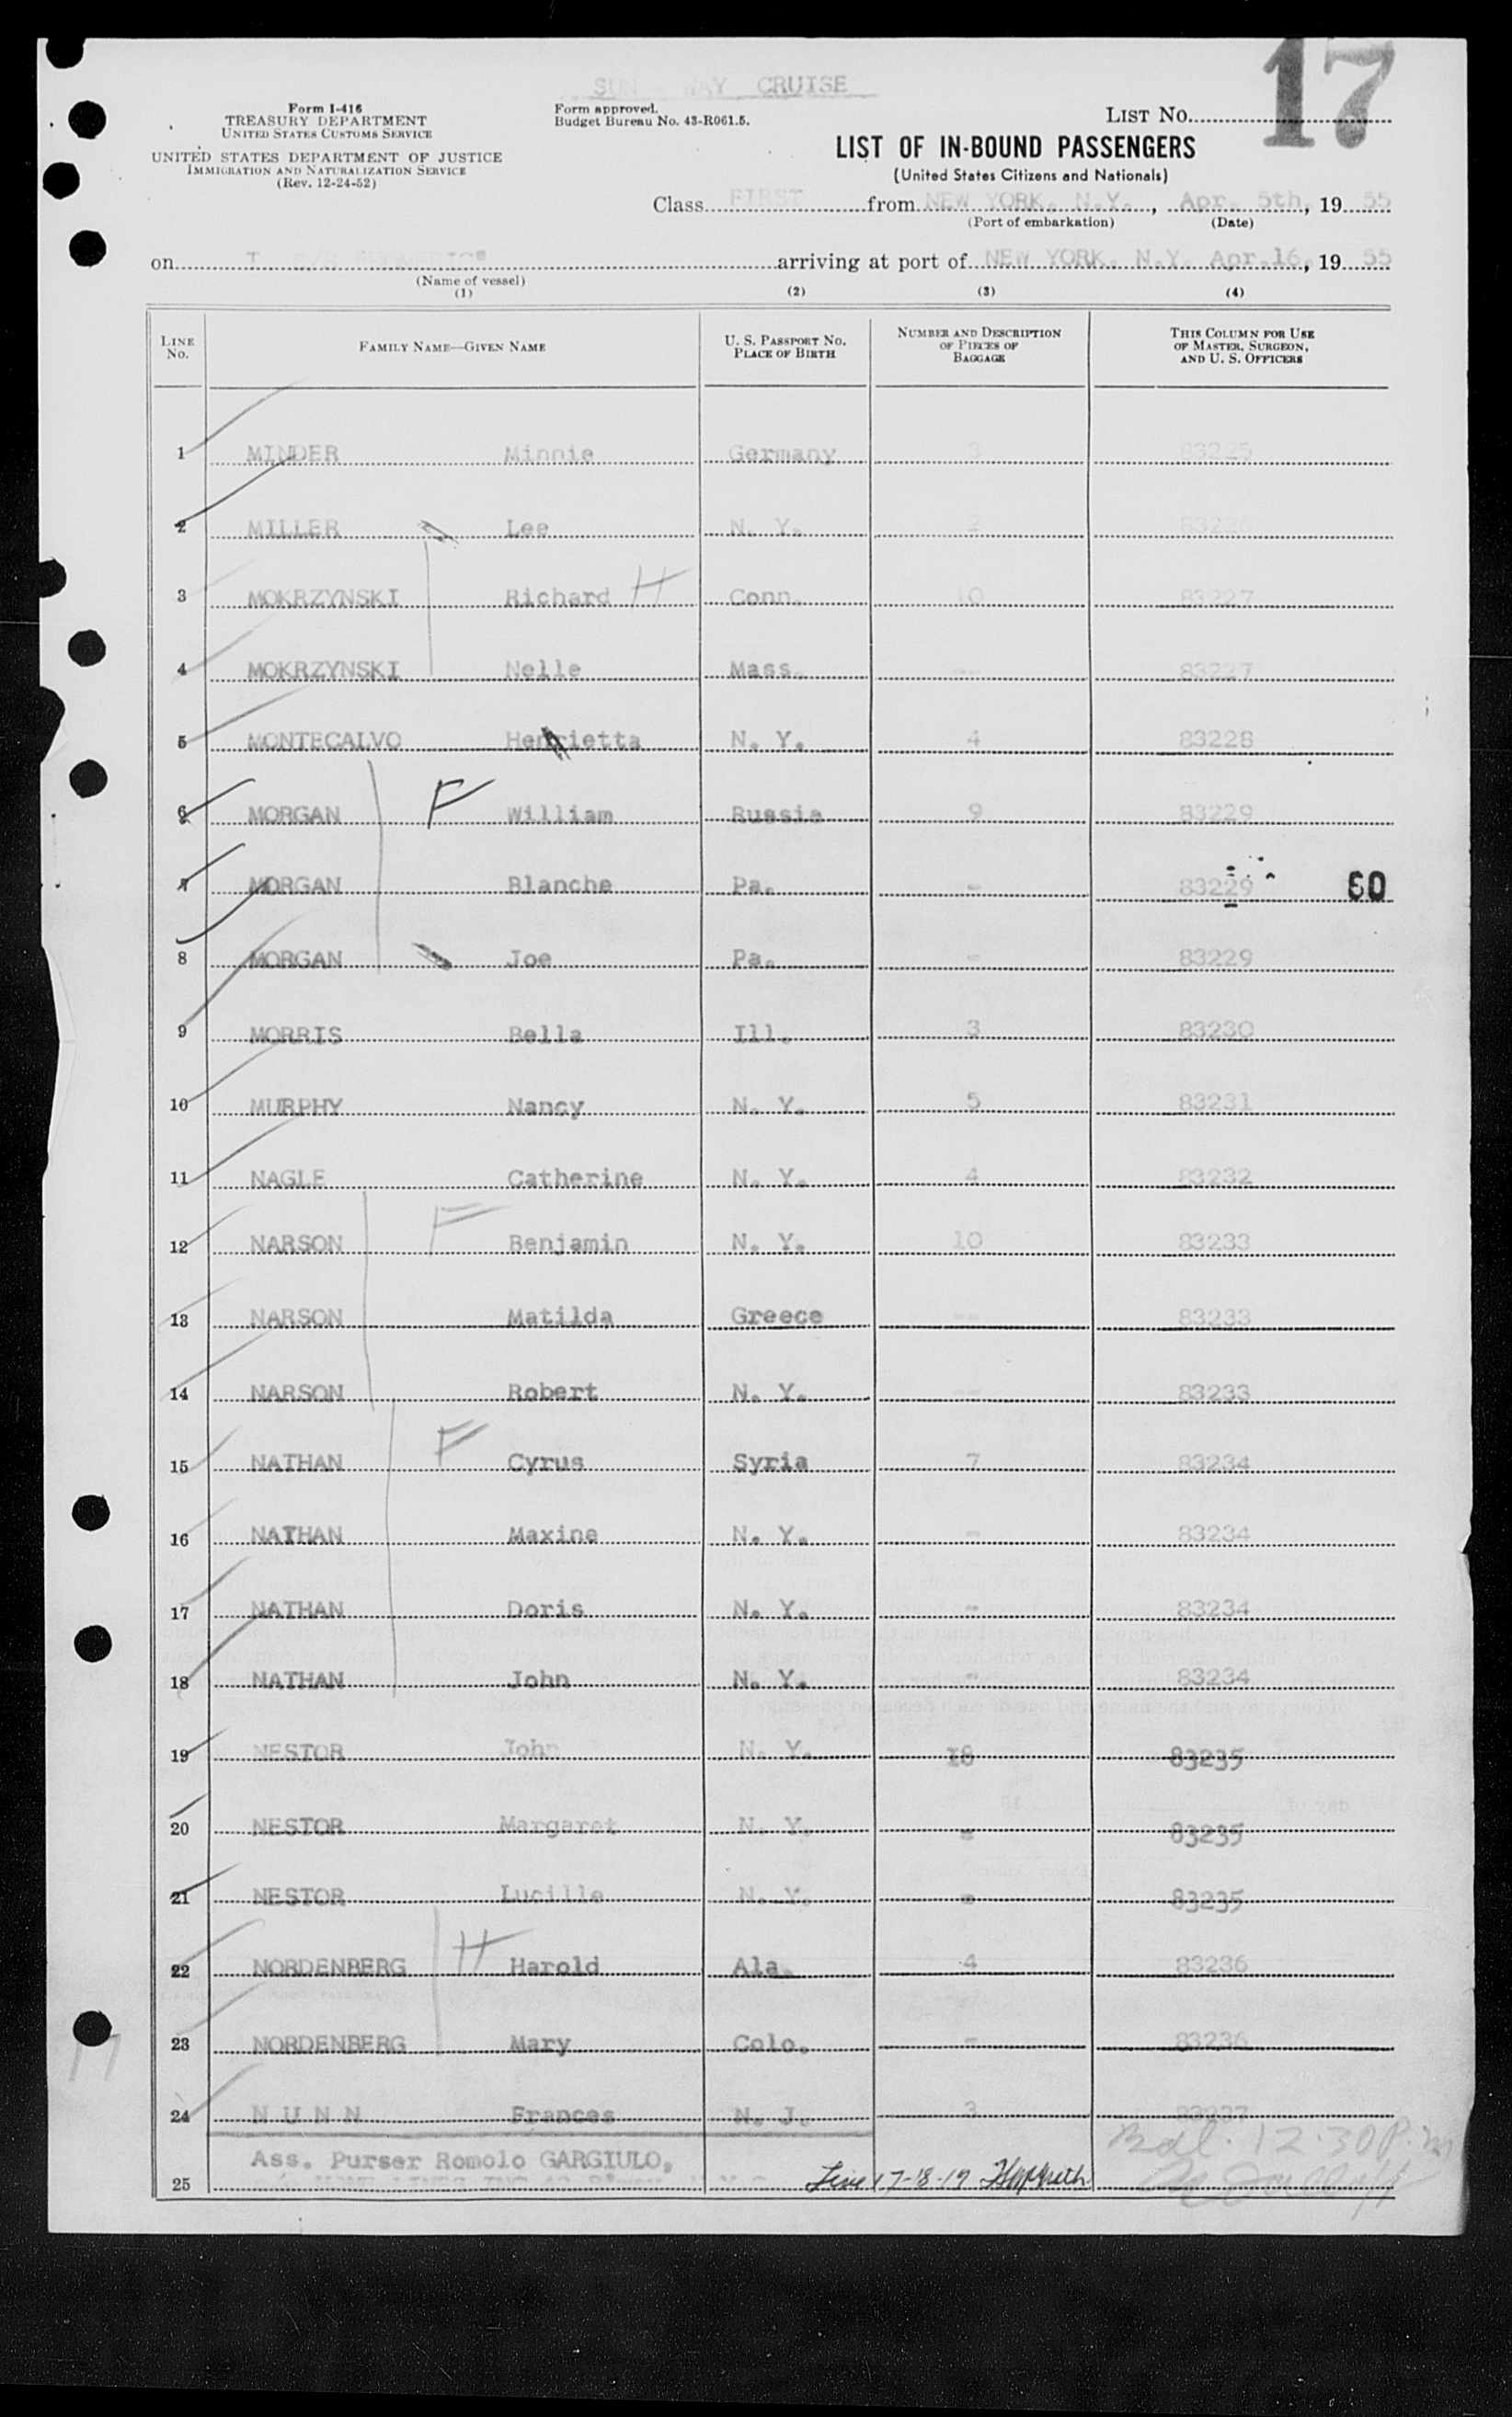 17
CRUISE
Form I-416
TREASURY DEPARTMENT
UNITED STATES CUSTOMS SERVICE
UNITED STATES DEPARTMENT OF JUSTICE
IMMIGRATION AND NATURALIZATION SERVICE
(Rev. 12-24-52)
Form approved.
Budget Bureau No. 43-R061.5.
LIST NO.
LIST OF IN-BOUND PASSENGERS
(United States Citizens and Nationals)
Class FIRST from NEW YORK, N.Y., Apr. 5th, 1955
(Port of embarkation) (Date)
on arriving at port of NEW YORK, N.Y. Apr.16, 1955
(Name of vessel)
(1) (2) (3) (4)
LINE NO. FAMILY NAME—GIVEN NAME U. S. PASSPORT NO. PLACE OF BIRTH NUMBER AND DESCRIPTION OF PIECES OF BAGGAGE THIS COLUMN FOR USE OF MASTER, SURGEON, AND U. S. OFFICERS
1 MINDER Minnie Germany 3 83225
2 MILLER Lee N. Y. 2
3 MOKRZYNSKI Richard H Conn. 10 83227
4 MOKRZYNSKI Nelle Mass. -- 83227
5 MONTECALVO Henrietta N. Y. 4 83228
6 MORGAN F William Russia 9 83229
7 MORGAN Blanche Pa. - 83229 60
8 MORGAN Joe Pa. - 83229
9 MORRIS Bella Ill. 3 83230
10 MURPHY Nancy N. Y. 5 83231
11 NAGLE Catherine N. Y. 4 83232
12 NARSON F Benjamin N. Y. 10 83233
13 NARSON Matilda Greece -- 83233
14 NARSON Robert N. Y. -- 83233
15 NATHAN F Cyrus Syria 7 83234
16 NATHAN Maxine N. Y. - 83234
17 NATHAN Doris N. Y. - 83234
18 NATHAN John N. Y. - 83234
19 NESTOR John N. Y. 18 83235
20 NESTOR Margaret N. Y. - 83235
21 NESTOR Lucille N. Y. - 83235
22 NORDENBERG H Harold Ala. 4 83236
23 NORDENBERG Mary Colo. - 83236
17
24 N U N N Frances N. J. 3 83237
Ass. Purser Romolo GARGIULO, 12.30 P.m
25 Line 17-18-19